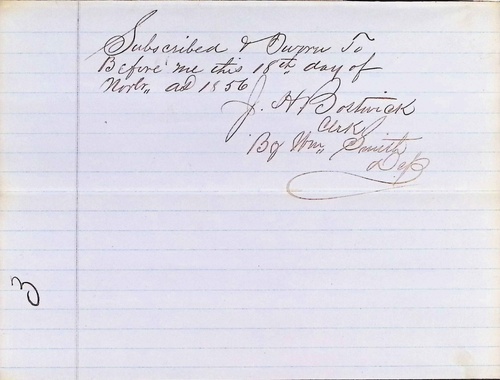 Subscribed & Sworn To
Before me this 18th day of
Novbr, AD 1856
J. H. Bostwick
Clerk
By Wm, Smith
Dep
3